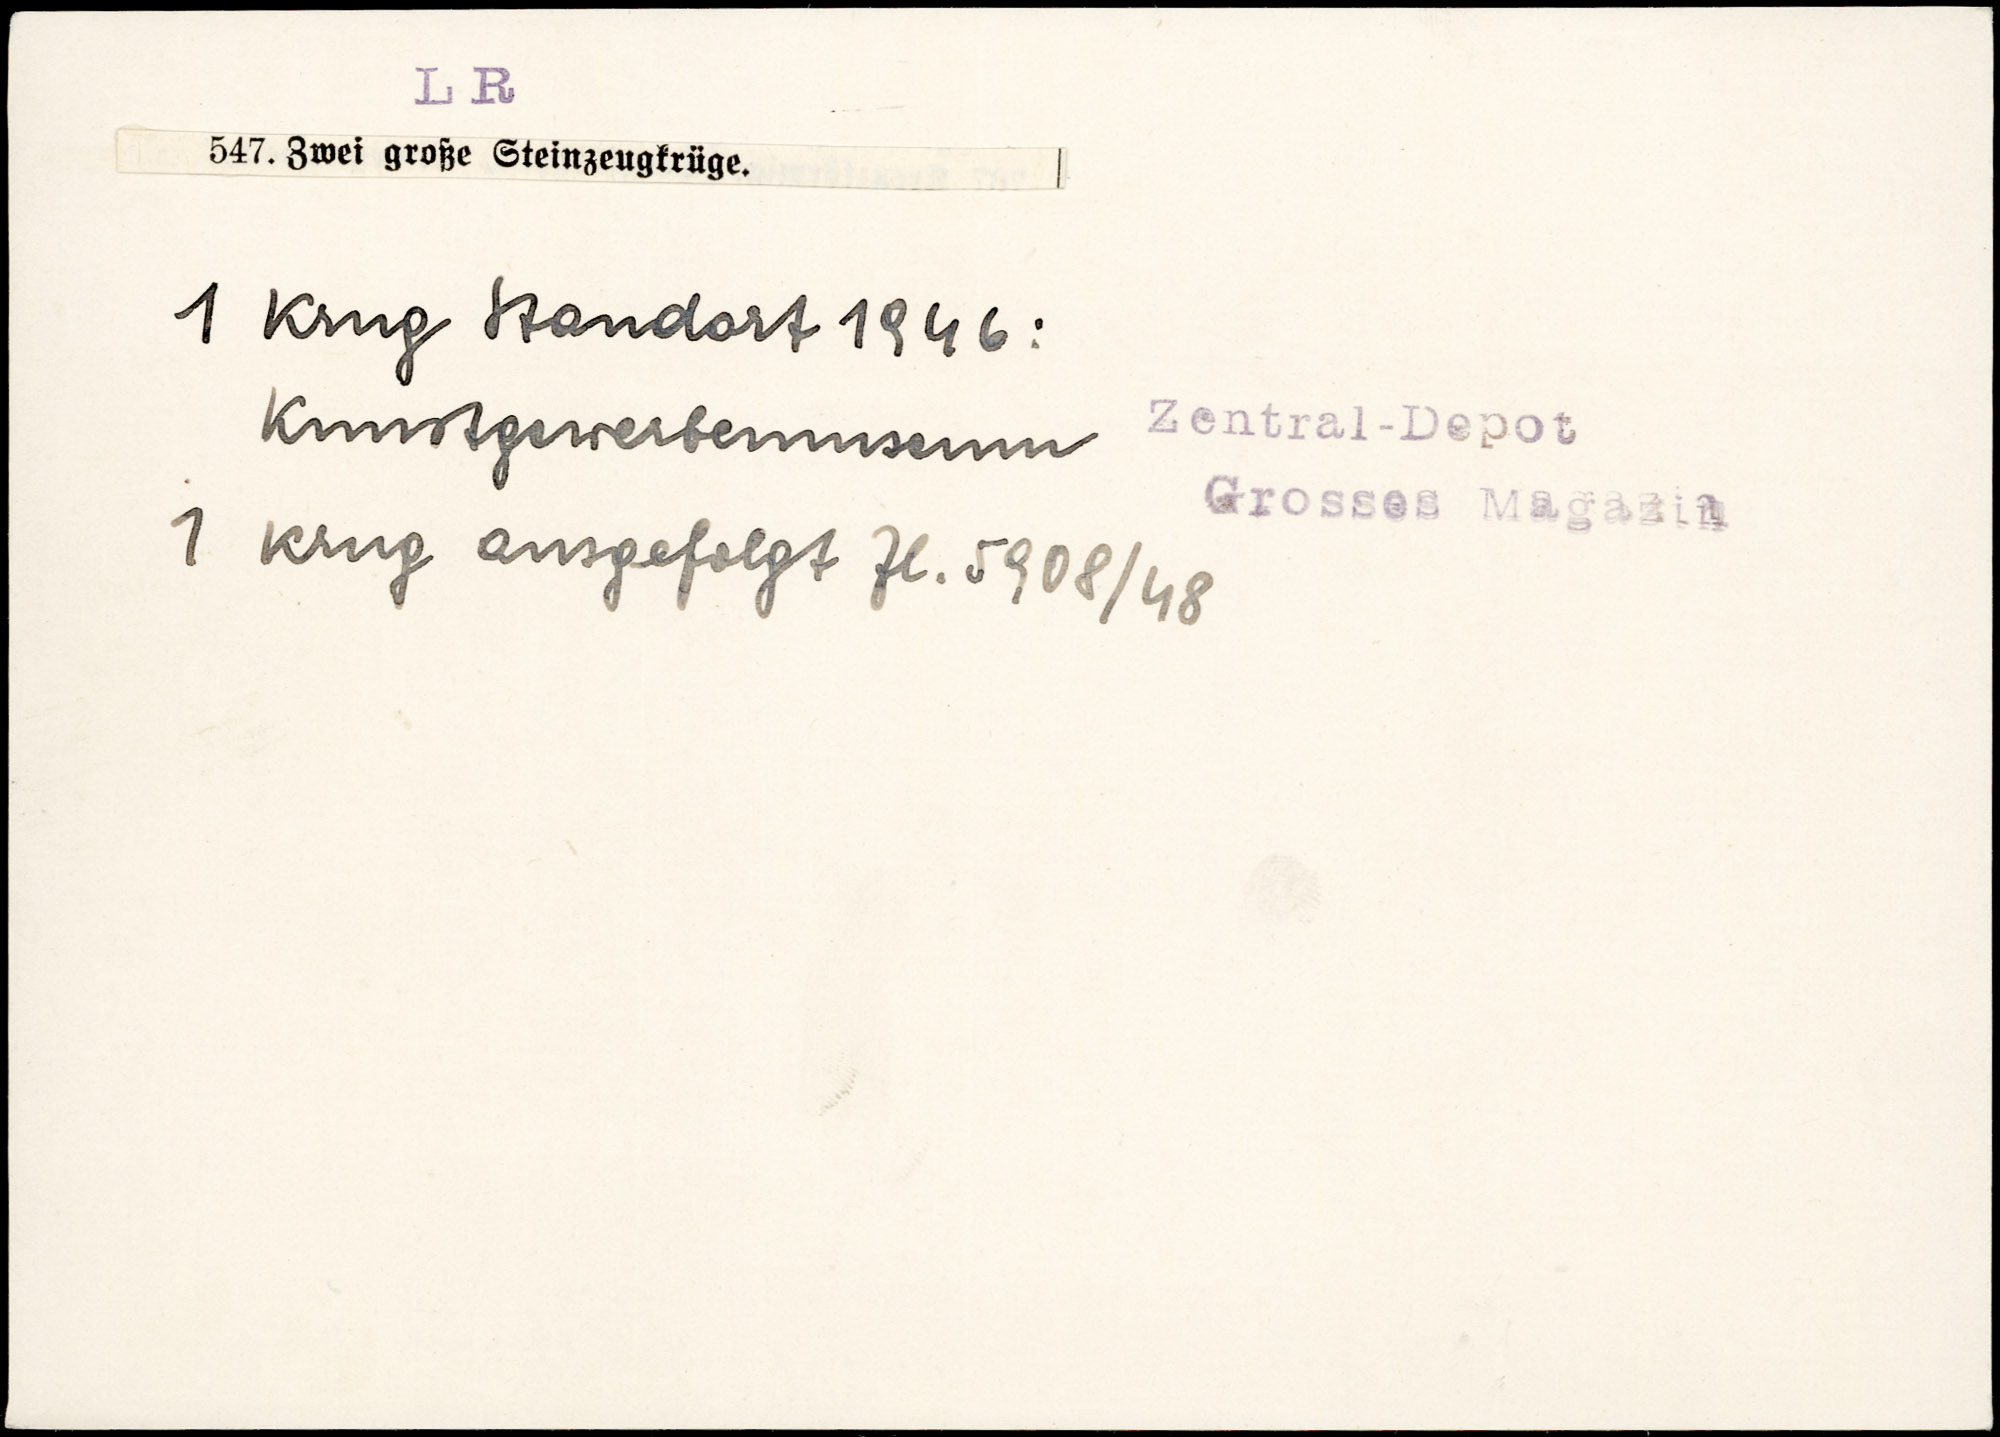 L R
547. Zwei große Steinzeugkrüge.
1 Krug Standort 1946:
Kunstgewerbemuseum
Zentral-Depot
Grosses Magazin
1 Krug ausgefolgt Zl. 5908/48